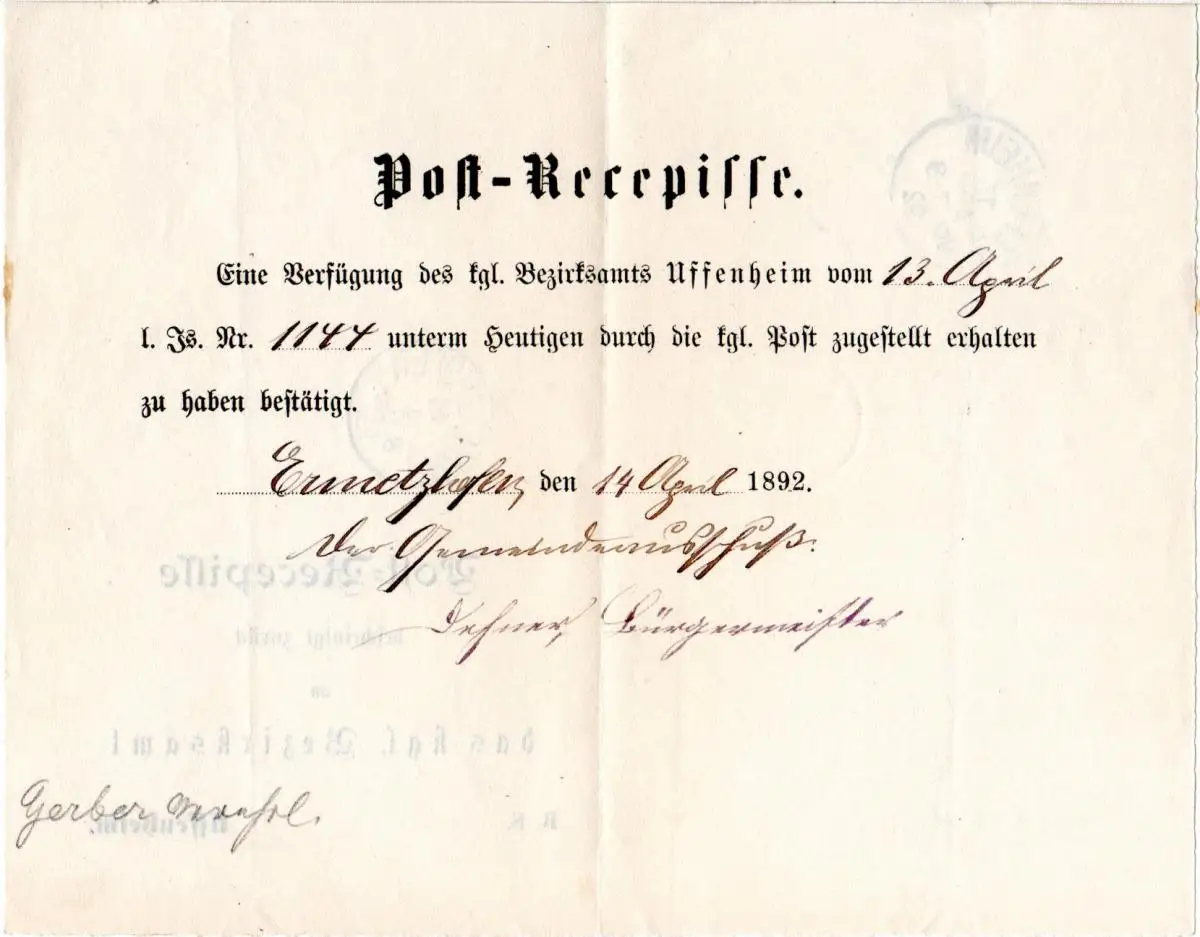 Post-Recepisse.
Eine Verfügung des kgl. Bezirksamts Uffenheim vom 13. April
l. Js. Nr. 1144 unterm Heutigen durch die kgl. Post zugestellt erhalten
zu haben bestätigt.
Ermetzhofen, den 14 April 1892.
Der Gemeindeausschuß:
Dehner, Bürgermeister
Post-Recepisse
an
das kgl. Bezirksamt
Gerber
R. S. Uffenheim.